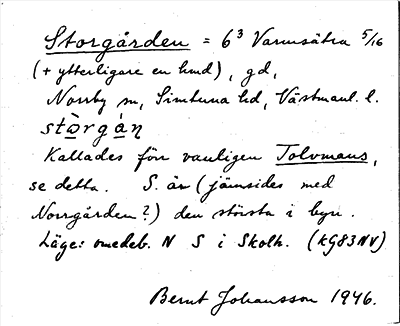 Storgården = 6³ Varmsätra 5/16
(+ ytterligare en hmd), gd,
Norrby sn, Simtuna hd, Västmanl. l.
stòrgán
Kallades förr vanligen Tolvmans,
se detta. S. är (jämsides med
Norrgården?) den största i byn.
Läge: omedelb. N S i Skolh. (kG83NV)
Bernt Johansson 1946.